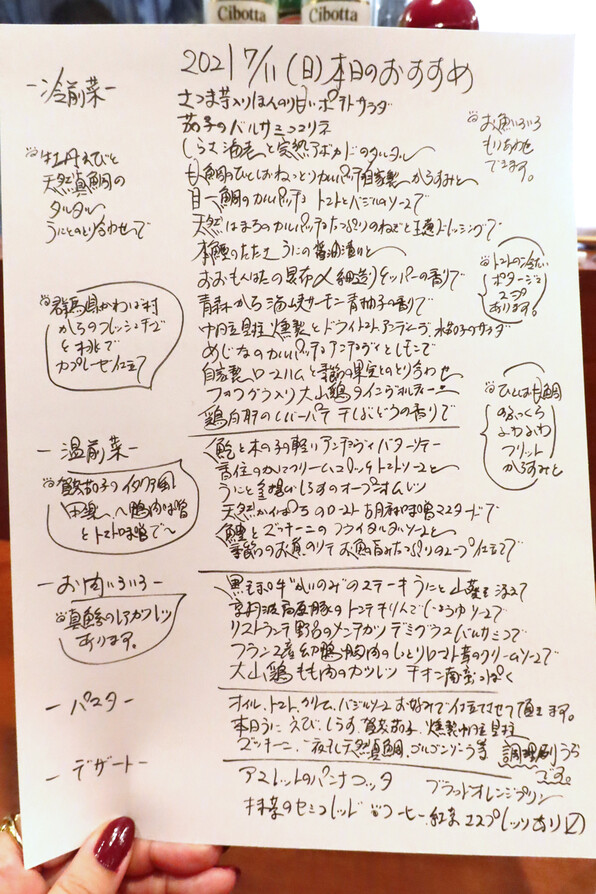 Cibotta
Cibotta
2021 7/11 (日) 本日のおすすめ
-冷前菜-
さつま芋入りほんのり甘いポテトサラダ
茄子のバルサミコマリネ
しらす 海老と完熟アボカドのタルタル
鱧のひとしおねっとりカルパッチョ自家製からすみと
目一鯛のカルパッチョ トマトとバジルのソースで
天然はまちのカルパッチョたっぷりのねぎと生姜ドレッシングで
本鰹のたたき うにの醤油漬けと
おおもんはたの昆布〆細造りケッパーの香りで
青森から海峡サーモン青柚子の香りで
帆立貝柱燻製とドライトマトアンディーブ、水茄子のサラダ
めじなのカルパッチョアンチョヴィとレモンで
自家製ロースハムと季節の果実とのとり合わせ
フォアグラ入り大山鶏のインヴォルティーニ
鶏白肝のレバーパテ 干しぶどうの香りで
牡丹えびと
天然真鯛の
タルタル
うにとのとり合わせで
群馬県かわば村
からのフレッシュチーズ
と桃で
カプレーゼ仕立て
お魚いろいろ
もりあわせ
できます。
トマトの冷たい
ポタージュ
スープ
あります。
-温前菜-
鮑と木の子の軽いアンチョヴィバターソテー
香住のかにクリームコロッケトマトソースと
うにと釜揚げしらすのオープンオムレツ
天然かんぱちのロースト 胡麻味噌マスタードで
鰹とズッキーニのフライタルタルソースと
季節のお魚のソテー お魚の旨みたっぷりのスープ仕立てで
賀茂茄子のイタリア風
田楽 〜鴨肉味噌
とトマト味噌で〜
ひとしお鱧
のふっくら
ふわふわ
フリット
からすみと
-お肉いろいろ-
黒毛和牛"かいのみ"のステーキ うにと山葵を添えて
京丹波高原豚のトンテキりんごしょうゆソースで
リストランテ野呂のメンチカツ デミグラスバルサミコで
フランス産幼鴨胸肉のしっとりロースト茸のクリームソースで
大山鶏もも肉のカツレツ チキン南蛮っぽく
真鯵のレアカツレツ
あります。
-パスタ-
オイル、トマト、クリーム、バジルソース お好みで仕立てさせて頂きます。
本日うに えび、しらす、賀茂茄子、燻製帆立貝柱
ズッキーニ、一夜干し天然真鯛、ゴルゴンゾーラ等
-デザート-
アメレットのパンナコッタ
ブラッドオレンジプリン
抹茶のセミフレッド
コーヒー、紅茶 エスプレッソあり〼